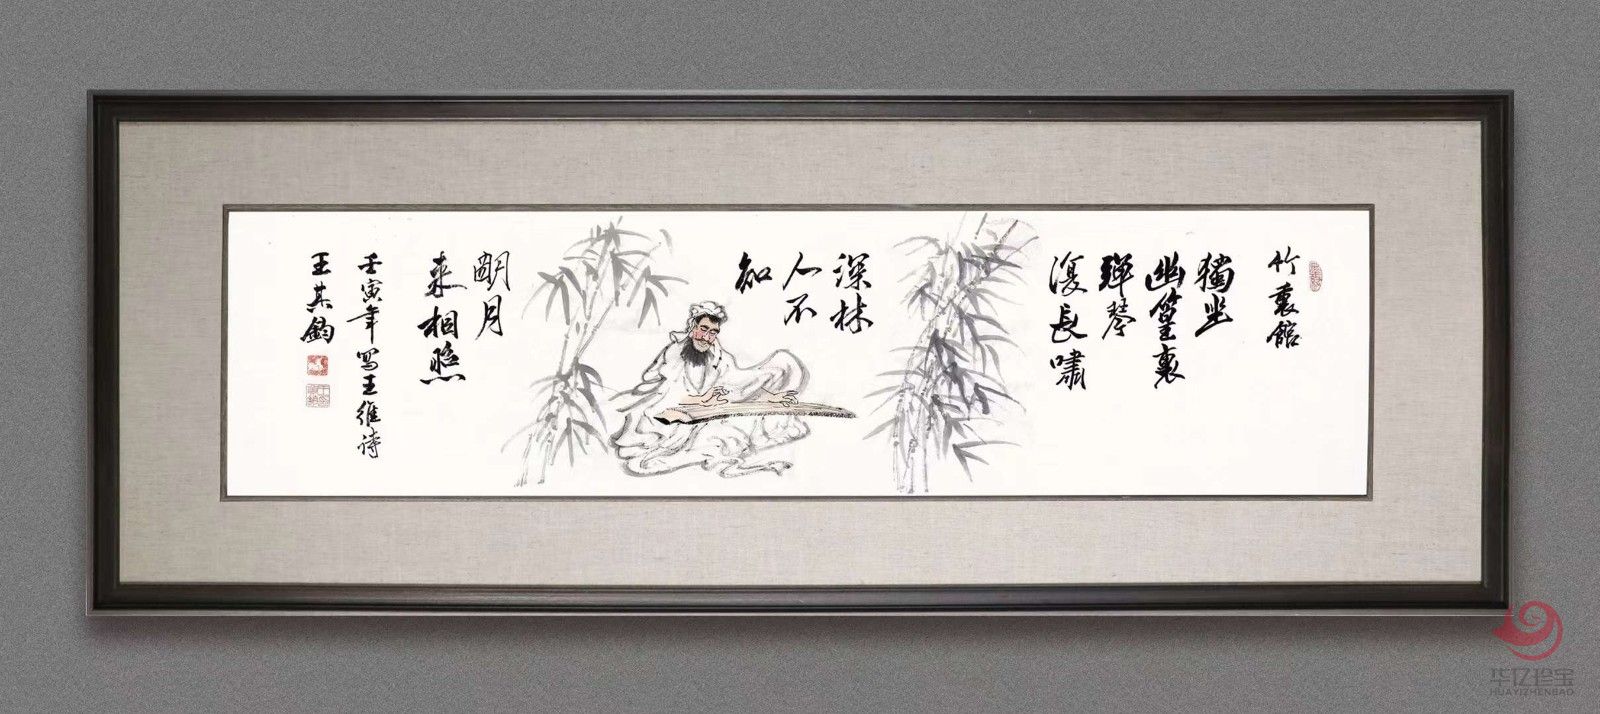 竹裏館
獨坐
幽篁裏
彈琴
復長嘯
深林
人不
知
明月
来相照
壬寅年寫王維诗
王其鈞
华亿珍宝
HUAYIZHENBAO